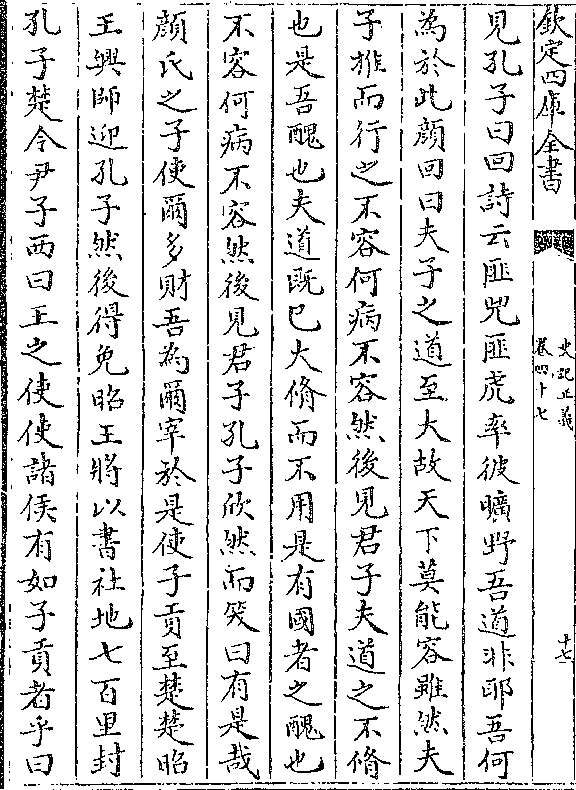 欽定四庫全書
史記正義
卷四十七
十七
見孔子曰回詩云匪兕匪虎率彼曠野吾道非耶吾何
為於此顔回曰夫子之道至大故天下莫能容雖然夫
子推而行之不容何病不容然後見君子夫道之不脩
也是吾醜也夫道既已大脩而不用是有國者之醜也
不容何病不容然後見君子孔子欣然而笑曰有是哉
顔氏之子使爾多財吾為爾宰於是使子貢至楚楚昭
王興師迎孔子然後得免昭王將以書社地七百里封
孔子楚令尹子西曰王之使使諸侯有如子貢者乎曰